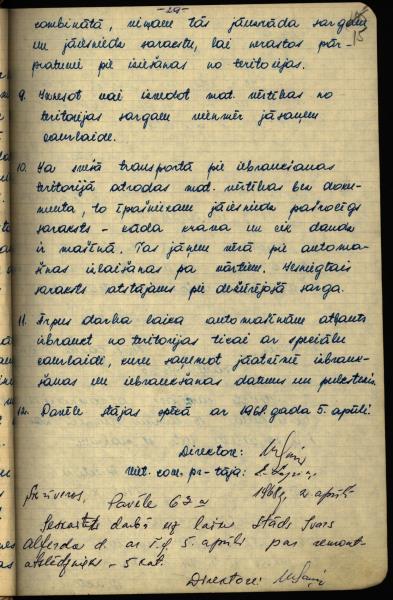 - 29 -
15
kombinātā, viņam tās jāuzrāda sargam
un jāiesniedz saraksts, lai nerastos pār-
pratumi pie iziešanas no teritorijas.
9. Ienesot vai iznesot mat. vērtības no
teritorijas sargam vienmēr jāsaņem
caurlaide.
10. Ja svešā transportā pie iebraukšanas
teritorijā atrodas mat. vērtības bez doku-
menta, to īpašniekam jāiesniedz pašrocīgs
saraksts - kāda krava un cik daudz
ir mašīnā. Tas jāņem vērā pie automa-
šīnas izlaišanas pa vārtiem. Iesniegtais
saraksts atstājams pie dežūrējošā sarga.
11. Ārpus darba laika automašīnām atļauts
izbraukt no teritorijas tikai ar speciālu
caurlaidi, kuru saņemot jāatzīmē izbrauk-
šanas un iebraukšanas datums un pulkstenis.
12. Pavēle stājas spēkā ar 1968. gada 5. aprīli.
Direktors:
viet. kom. pr-tāja:
1968. g. 2. aprīlī
Pavēle 63
darbā uz laiku Ivars
Alfreda d. ar š.g. 5. aprīli par remont-
atslēdznieku - 5 kat.
Direktors: